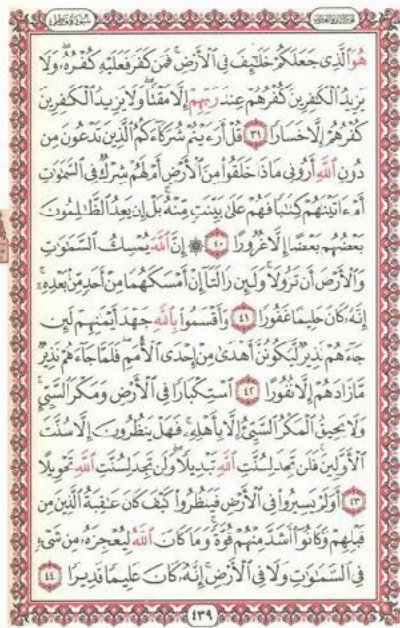 سُورَةُ فَاطِرٍ
هُوَ ٱلَّذِى جَعَلَكُمْ خَلَٰٓئِفَ فِى ٱلْأَرْضِ ۚ فَمَن كَفَرَ فَعَلَيْهِ كُفْرُهُۥ ۖ وَلَا
يَزِيدُ ٱلْكَٰفِرِينَ كُفْرُهُمْ عِندَ رَبِّهِمْ إِلَّا مَقْتًا ۖ وَلَا يَزِيدُ ٱلْكَٰفِرِينَ
كُفْرُهُمْ إِلَّا خَسَارًا ٣٩ قُلْ أَرَءَيْتُمْ شُرَكَآءَكُمُ ٱلَّذِينَ تَدْعُونَ مِن
دُونِ ٱللَّهِ أَرُونِى مَاذَا خَلَقُوا۟ مِنَ ٱلْأَرْضِ أَمْ لَهُمْ شِرْكٌ فِى ٱلسَّمَٰوَٰتِ
أَمْ ءَاتَيْنَٰهُمْ كِتَٰبًا فَهُمْ عَلَىٰ بَيِّنَتٍ مِّنْهُ ۚ بَلْ إِن يَعِدُ ٱلظَّٰلِمُونَ
بَعْضُهُم بَعْضًا إِلَّا غُرُورًا ٤٠ ۞ إِنَّ ٱللَّهَ يُمْسِكُ ٱلسَّمَٰوَٰتِ
وَٱلْأَرْضَ أَن تَزُولَا ۚ وَلَئِن زَالَتَآ إِنْ أَمْسَكَهُمَا مِنْ أَحَدٍ مِّنۢ بَعْدِهِۦٓ ۚ
إِنَّهُۥ كَانَ حَلِيمًا غَفُورًا ٤١ وَأَقْسَمُوا۟ بِٱللَّهِ جَهْدَ أَيْمَٰنِهِمْ لَئِن
جَآءَهُمْ نَذِيرٌ لَّيَكُونُنَّ أَهْدَىٰ مِنْ إِحْدَى ٱلْأُمَمِ ۖ فَلَمَّا جَآءَهُمْ نَذِيرٌ
مَّا زَادَهُمْ إِلَّا نُفُورًا ٤٢ ٱسْتِكْبَارًا فِى ٱلْأَرْضِ وَمَكْرَ ٱلسَّيِّئِ ۚ
وَلَا يَحِيقُ ٱلْمَكْرُ ٱلسَّيِّئُ إِلَّا بِأَهْلِهِۦ ۚ فَهَلْ يَنظُرُونَ إِلَّا سُنَّتَ
ٱلْأَوَّلِينَ ۚ فَلَن تَجِدَ لِسُنَّتِ ٱللَّهِ تَبْدِيلًا ۖ وَلَن تَجِدَ لِسُنَّتِ ٱللَّهِ تَحْوِيلًا
٤٣ أَوَلَمْ يَسِيرُوا۟ فِى ٱلْأَرْضِ فَيَنظُرُوا۟ كَيْفَ كَانَ عَٰقِبَةُ ٱلَّذِينَ مِن
قَبْلِهِمْ وَكَانُوٓا۟ أَشَدَّ مِنْهُمْ قُوَّةً ۚ وَمَا كَانَ ٱللَّهُ لِيُعْجِزَهُۥ مِن شَىْءٍ
فِى ٱلسَّمَٰوَٰتِ وَلَا فِى ٱلْأَرْضِ ۚ إِنَّهُۥ كَانَ عَلِيمًا قَدِيرًا ٤٤
٤٣٩